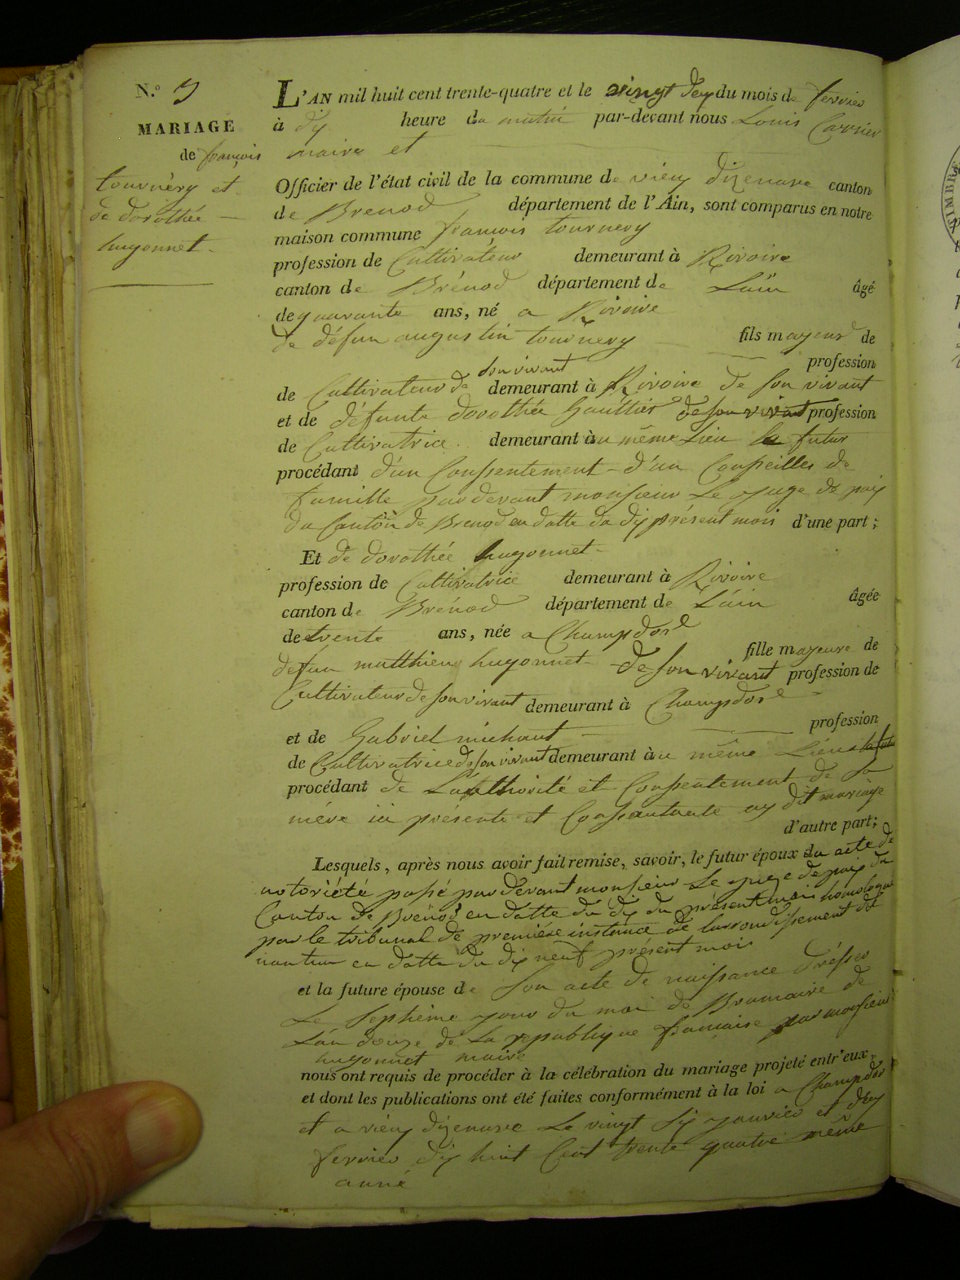 N.º 3
MARIAGE
de françois
tournery et
de dorothée
hugonnet.
L'AN mil huit cent trente-quatre et le vingt dex du mois de fevrier
à dix heure du matin par-devant nous Louis Carrier
maire et
Officier de l'état civil de la commune de vieux dizenave canton
de Brenod département de l'Ain, sont comparus en notre
maison commune françois tournery
profession de Cultivateur demeurant à Rivoire
canton de Brénod département de Lain âgé
de quarante ans, né a Rivoire
de défun augustin tournery fils mayeur de
son vivant profession
de Cultivateur de demeurant à Rivoire de son vivant
et de défunte dorothée Gauttier de son vivant profession
de Cultivatrice demeurant au même Lieu le futur
procédant d'un Conssentement d'un Conseilles de
famille pardevant monsieur Le juge de paix
du Canton de Brenod en datte du dix présent mois d'une part;
Et de dorothée hugonnet
profession de Cultivatrice demeurant à Rivoire
canton de Brénod département de Lain âgée
de trente ans, née a Champdor
défun matthieu hugonnet fille mayeure de
de son vivant profession de
Cultivateur de son vivant demeurant à Champdor
et de Gabriel michaut profession
de Cultivatrice de son vivant demeurant au même Lieu la future
procédant de Lauthorité et Conssentement de sa
mére ici présente et Conssantante au dit mariage
d'autre part;
Lesquels, après nous avoir fait remise, savoir, le futur époux du acte de
notorieté passé pardevant monsieur Le juge de paix du
Canton de Brénod en datte du dix du présent mois homologué
par le tribunal de première instance de larrondissement de
nantua en datte du dix neuf présent mois
et la future épouse de son acte de naissance dressée
Le septième jour du moi de Brumaire de
Lan douze de La republique francaise par monsieur
hugonnet maire
nous ont requis de procéder à la célébration du mariage projeté entr'eux,
et dont les publications ont été faites conformément à la loi a Champdor
et a vieux dizenave Le vingt six janvier et dex
fevrier dix huit Cent trente quatre même
anné